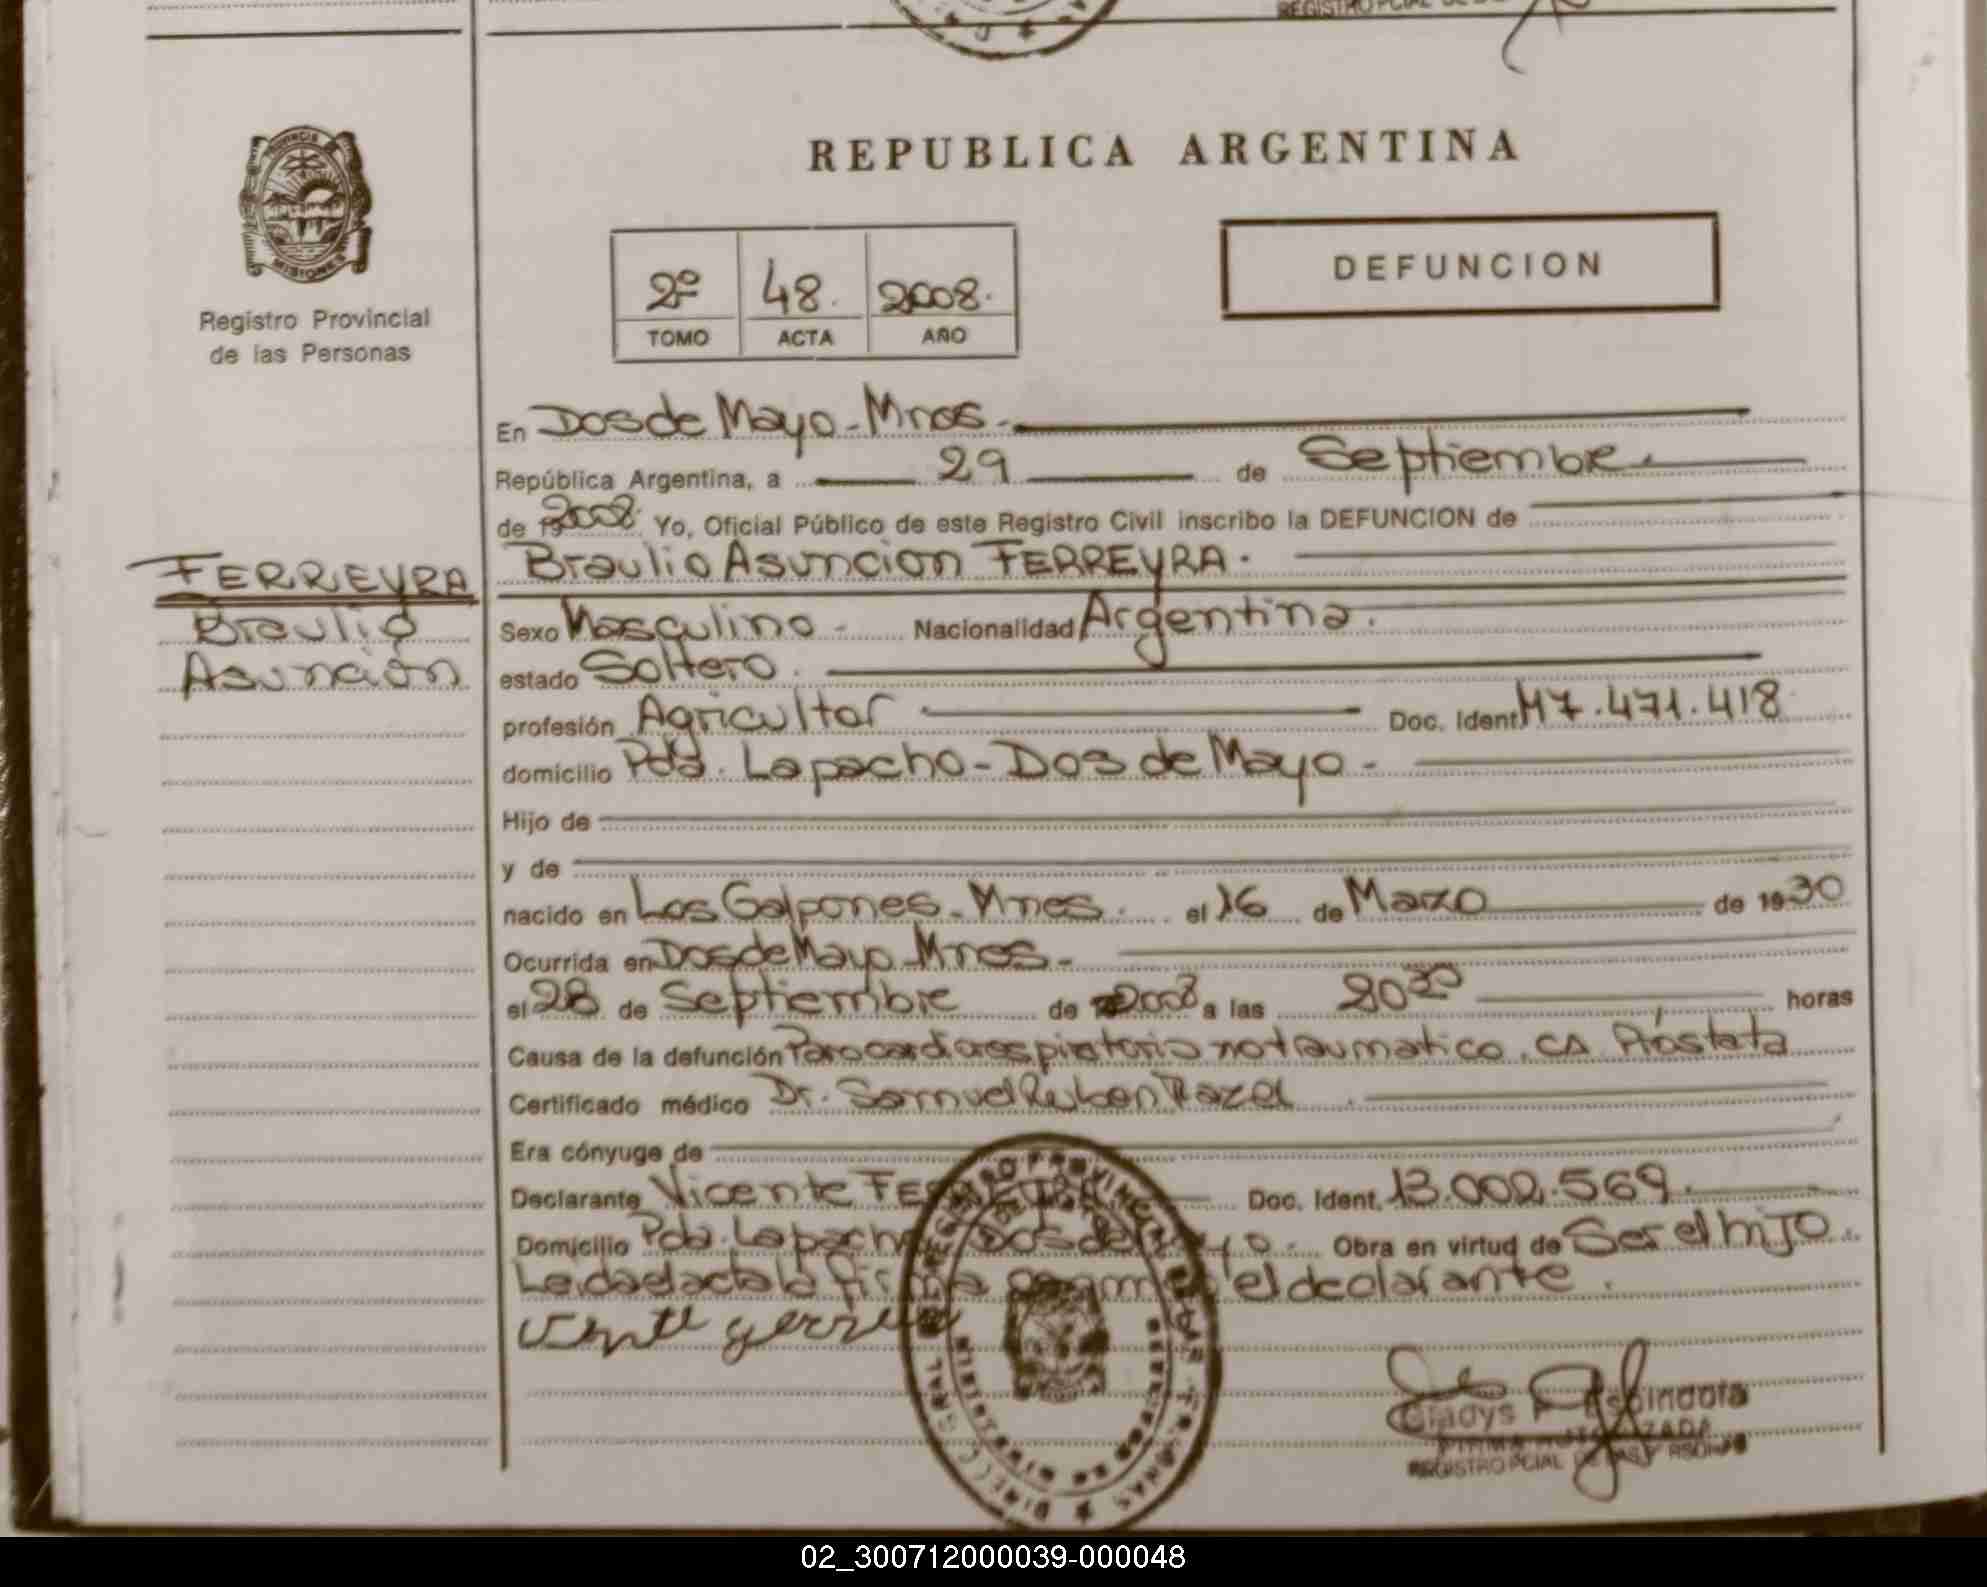 REPUBLICA ARGENTINA
PROVINCIA
MISIONES
Registro Provincial
de las Personas
DEFUNCION
2º 48. 2008.
TOMO ACTA AÑO
En Dos de Mayo - Mnes.
República Argentina, a 29 de Septiembre
de 2008. Yo, Oficial Público de este Registro Civil inscribo la DEFUNCION de
Braulio Asuncion FERREYRA.
FERREYRA
Braulio
Asunción
Sexo Masculino - Nacionalidad Argentina.
estado Soltero.
profesión Agricultor Doc. Ident. M7.471.418
domicilio Pda. Lapacho - Dos de Mayo -
Hijo de
y de
nacido en Los Galpones - Mnes. el 16 de Marzo de 1930
Ocurrida en Dos de Mayo Mnes.
el 28 de Septiembre de 2008 a las 20 30 horas
Causa de la defunción Paro cardiorespiratorio no traumatico. CA Próstata
Certificado médico Dr. Samuel Ruben
Era cónyuge de
Declarante Vicente FERREYRA Doc. Ident. 13.002.569.
Domicilio Pda. Lapacho Dos de Mayo - Obra en virtud de Ser el hijo.
Leida el acta la firma conmigo el declarante.
Gladys F. Espindola
FIRMA AUTORIZADA
REGISTRO PCIAL DE LAS PERSONAS
02_300712000039-000048